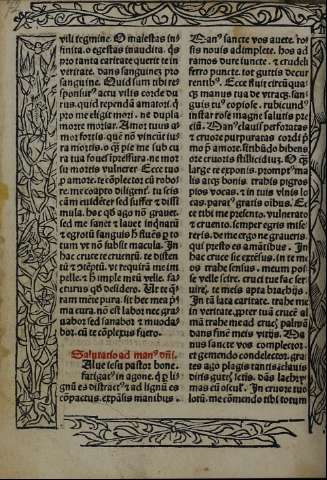 vili tegmine. O maiestas in
finita. o egestas inaudita. qs
pro tanta caritate querit te in
veritate. dans sanguinem pro
sanguine. Quid sum tibi re
sponsurus actu vilis corde du
rus. quid rependam amatori. qui
pro me eligit mori. ne dupla
morte moriar. Amor tuus a
mor fortis. quem non vincunt iura
mortis. o quam pie me sub cu
ra tua foues pressura. ne mor
su mortis vulnerer. Ecce tuo
pro amore. te complector cum robo
re. me coapto diligenter. tu scis
causam evidenter sed suffer et dissi
mula. hoc quod ago non grauet.
sed me sanet et lauet inquinatum
et egrotum sanguis hic fusus per to
tum ut non subsit macula. In
hac cruce te cruentum. te disten
tum
pellere. hoc
cturus quod desidero. Ut te quam
ram mente pura. sit hec mea prima
cura. non est labor nec gra
uabor sed sanabor et munda
bor. cum te complexus fuero.
Salutatio ad manus domini.
Alue iesu pastor bone.
fatigatus in agone. qui per li
gnum es distractus. et ad lignum es
compactus. expansis manibus.
Manus sancte vos auete. ro
sis nouis adimplete. hos ad
ramos dure iuncte. et crudeli
ferro puncte. tot guttis decur
rentibus. Ecce fluit circumqua
que manus tua de utraque. san
guis tuus copiose. rubicundus
instar rose magne salutis pre
cium. Manus clauis perforatas
et cruore purpuratas cordi per
mo prae amore. sitibundo bibens
ore cruoris stillicidium. O quam
large te exponis. promptus ma
lis atque bonis. trahis pigros
pios vocas. et in tuis vlnis lo
cas. paratus gratis omnibus. Ec
ce tibi me presento. vulnerato
et cruento. semper egris mise
reris. de me ergo ne graueris.
qui presto es amantibus. In
hac cruce sic extensus. in te me
os trahe sensus. meum pos
se velle scire. cruci tue fac ser
uire. te meis apta brachijs.
In tam lata caritate. trahe me
in veritate. propter tuam crucem al
mam trahe me ad crucis palmam
dans finem meis vitijs. Ma
nus sancte vos complector.
et gemendo condelector. gra
tes ago plagis tantis clauis
diris guttis sanctis. dans lachry
mas cum osculis. In cruore tuo
lotum. me commendo tibi totum